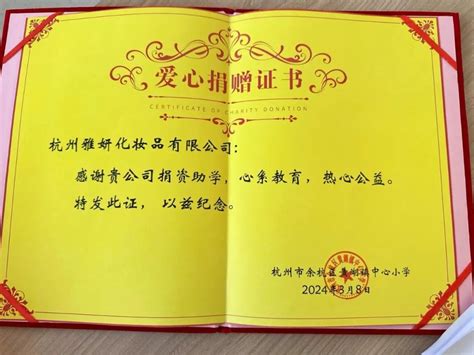 爱心捐赠证书
CERTIFICATE OF CHARITY DONATION
杭州雅妍化妆品有限公司:
感谢贵公司捐资助学，心系教育，热心公益。
特发此证，以兹纪念。
杭州市余杭区黄湖镇中心小学
2024年3月8日